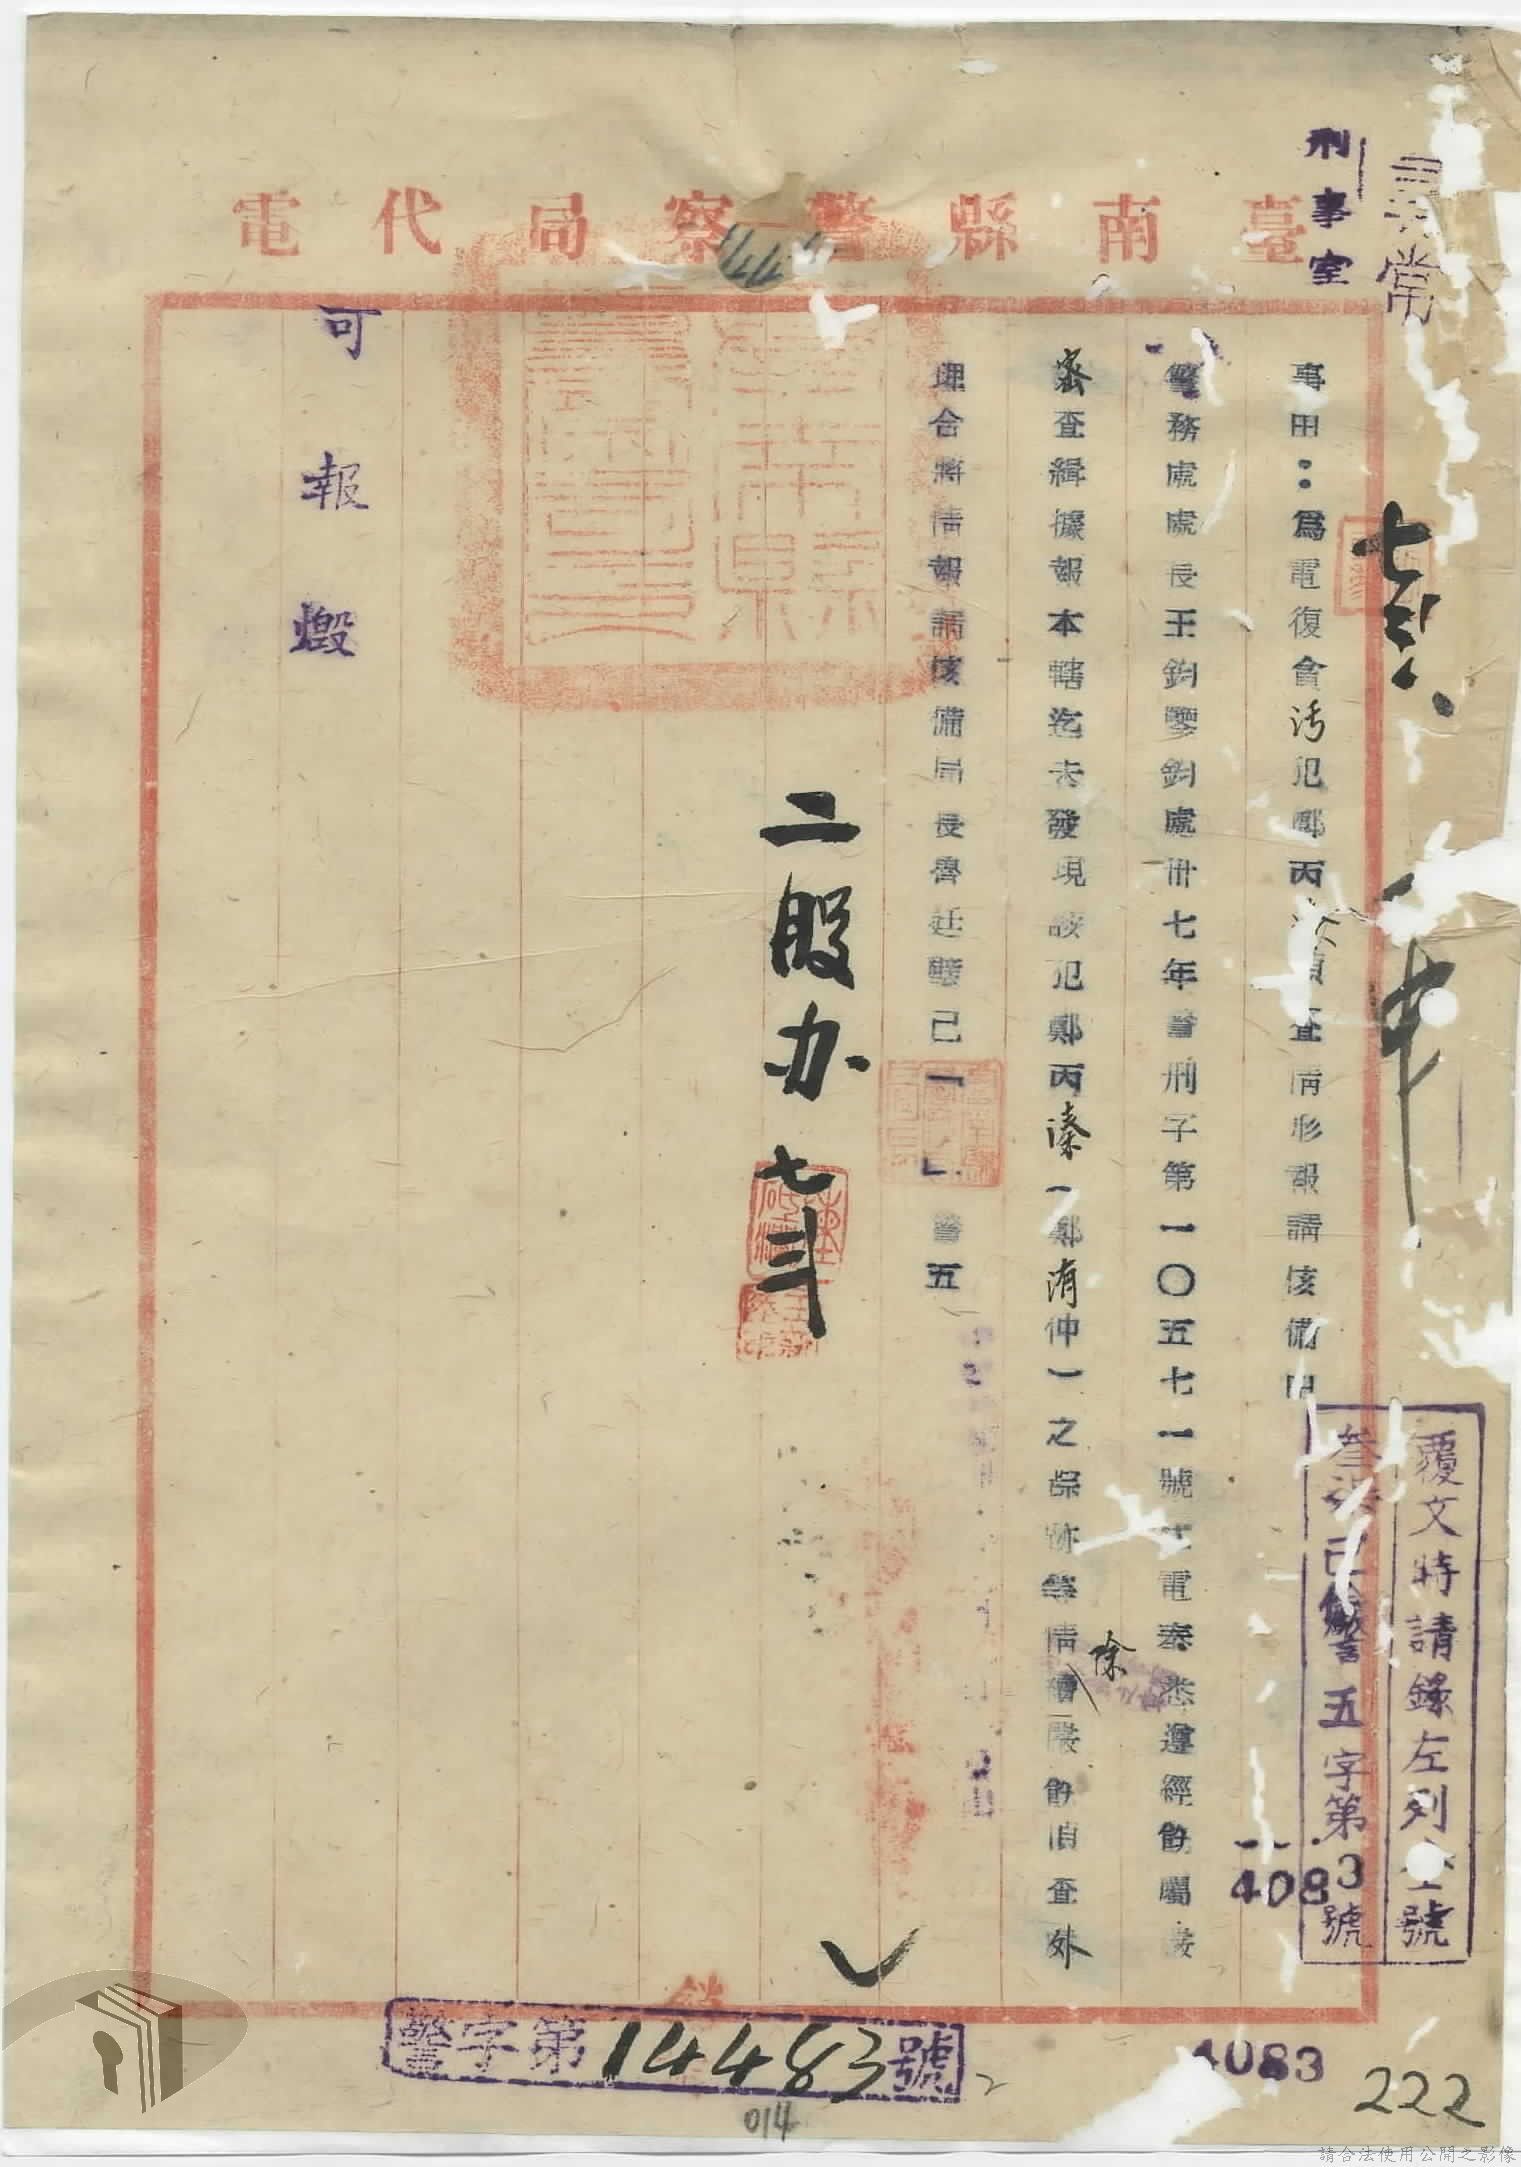 臺南縣警察局代電
尋常
刑事室
覆文時請錄左列 號
叁 已 警五字第 4083 號
事由：為電復貪污犯鄭丙 偵查情形報請核備由
警務處處長王鈞鑒鈞處卅七年警刑子第一〇五七一號 電奉悉遵經飭屬嚴
密查緝據報本轄迄未發現該犯鄭丙溱（鄭洧仲）之踪跡等情除續嚴飭偵查外
理合將情報請核備局長魯廷璧已「 」警五
二股办 七
可報燬
警字第14483號
4083
222
014
請合法使用公開之影像